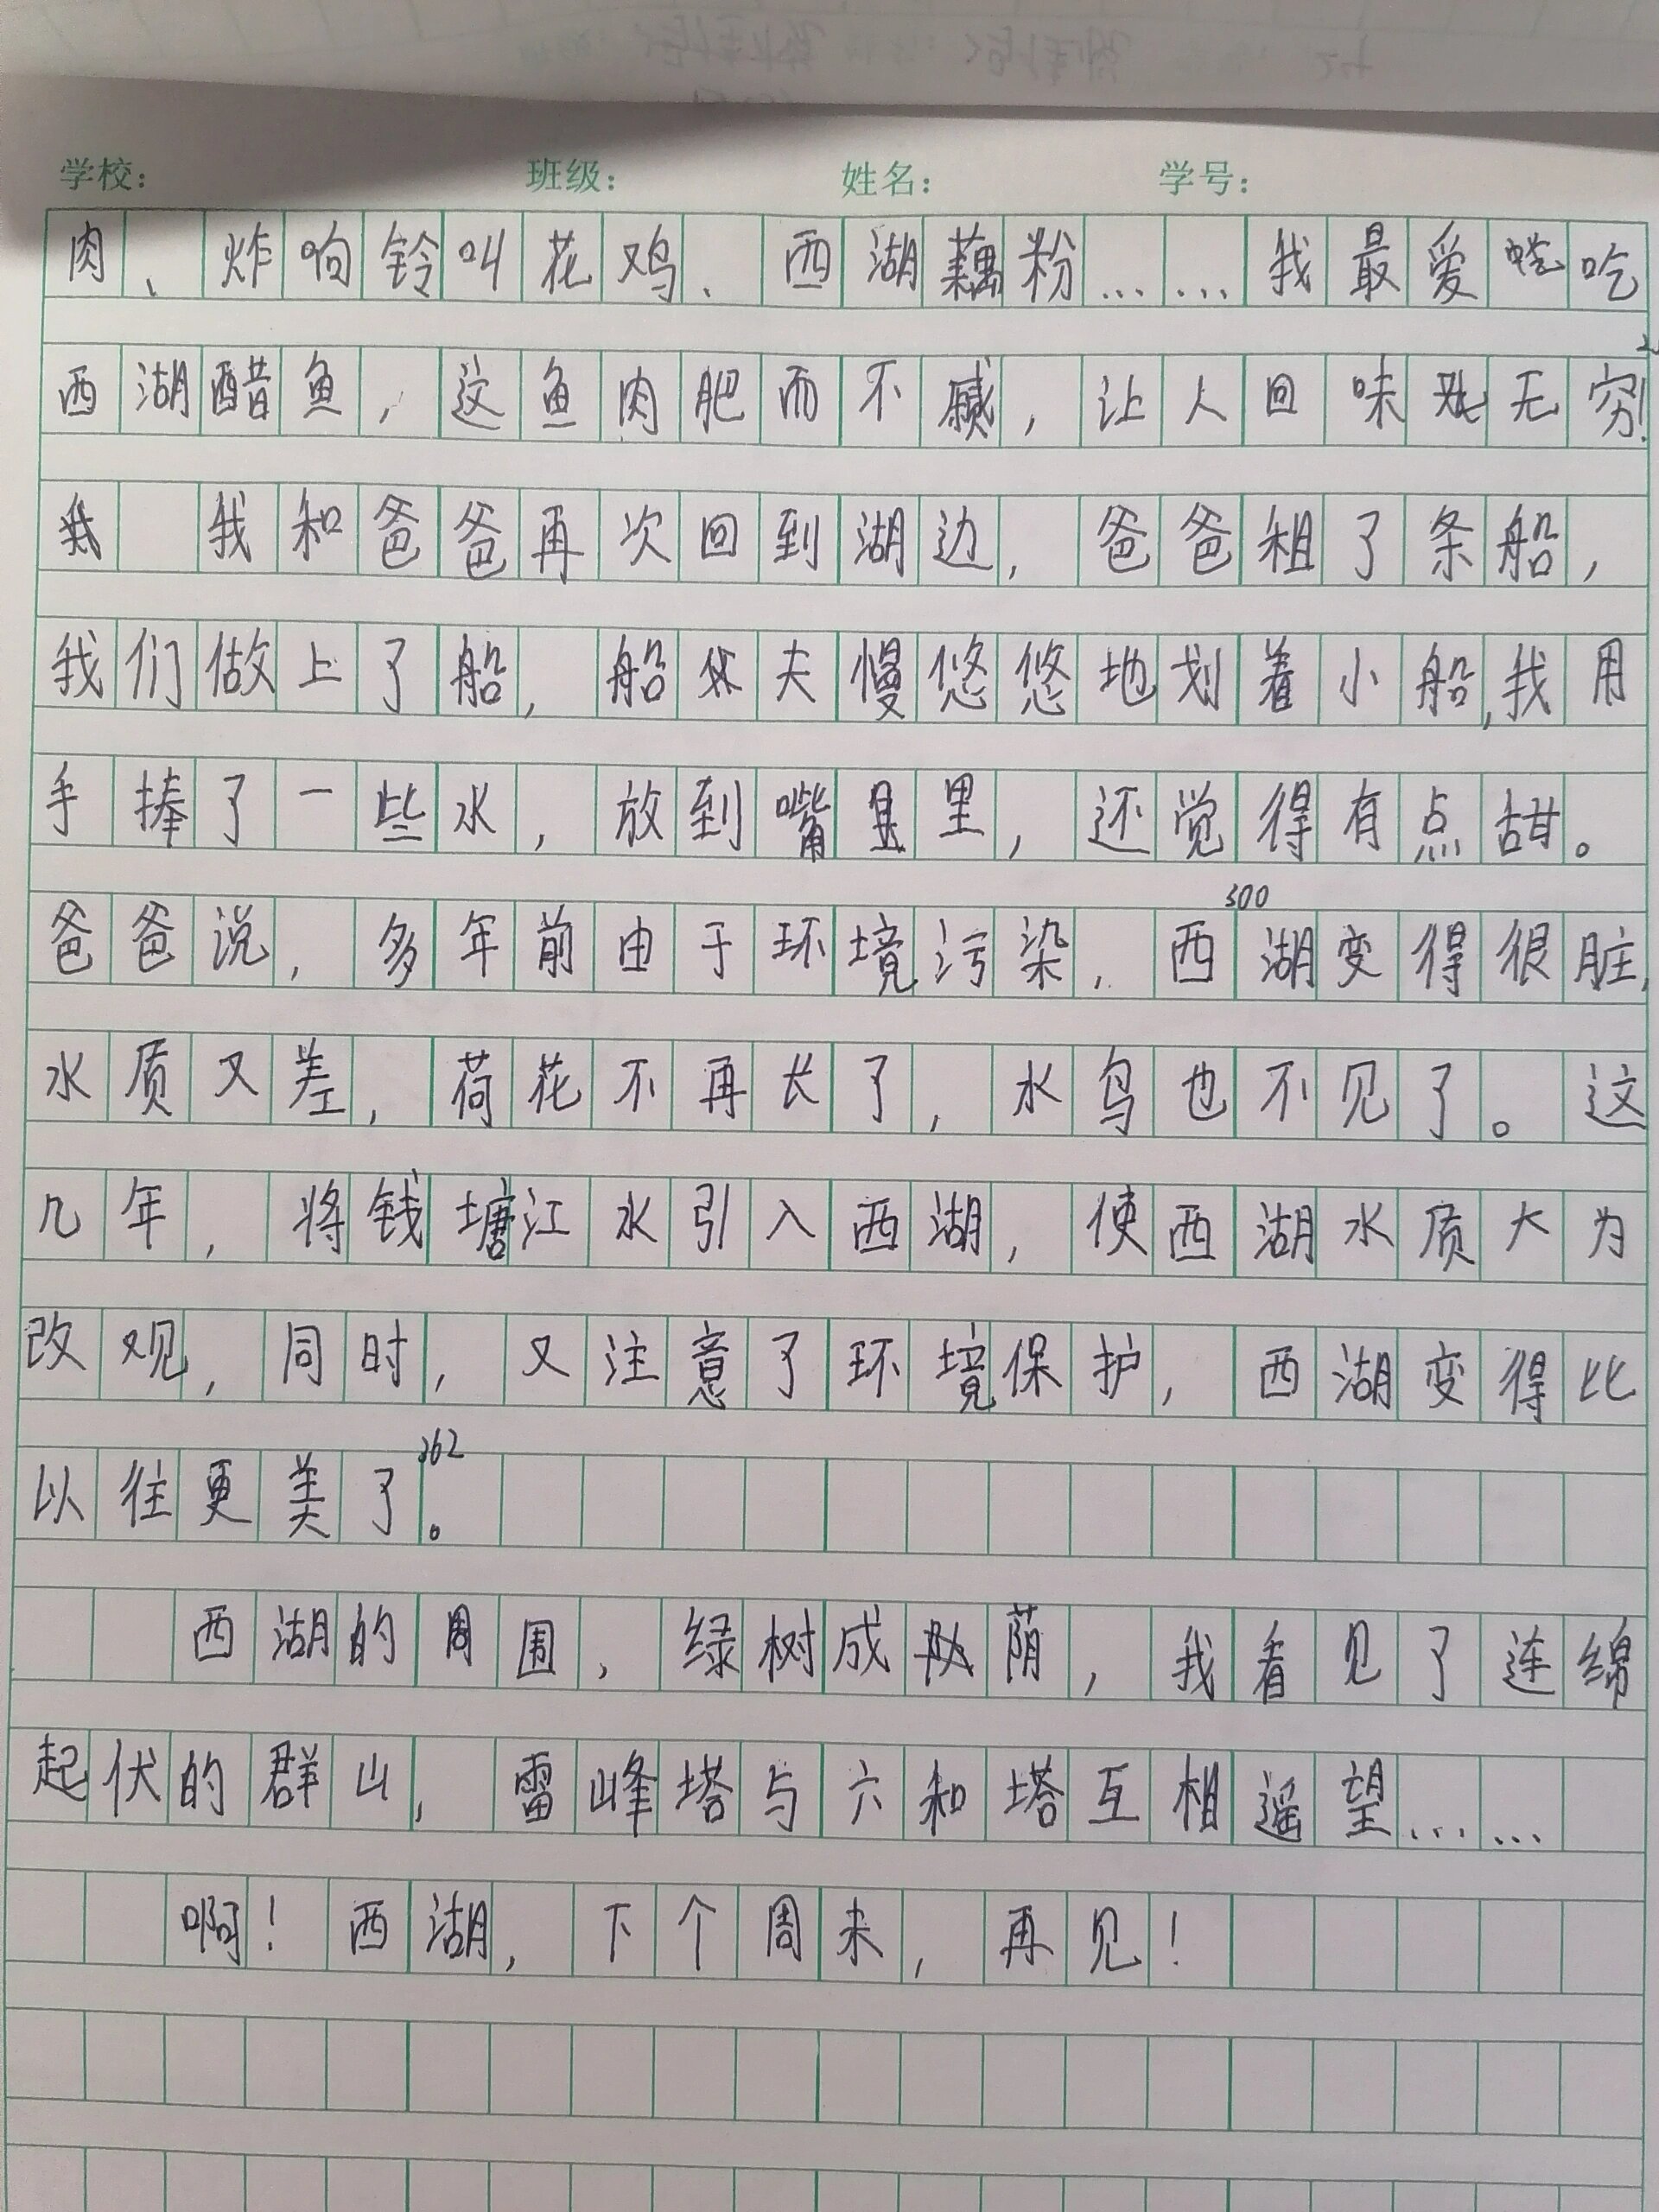 学校： 班级： 姓名： 学号：
肉、炸响铃叫花鸡、西湖藕粉……我最爱吃
西湖醋鱼，这鱼肉肥而不腻，让人回味无穷！
我和爸爸再次回到湖边，爸爸租了条船，
我们做上了船，船夫慢悠悠地划着小船，我用
手捧了一些水，放到嘴里，还觉得有点甜。
300
爸爸说，多年前由于环境污染，西湖变得很脏，
水质又差，荷花不再长了，水鸟也不见了。这
几年，将钱塘江水引入西湖，使西湖水质大为
改观，同时，又注意了环境保护，西湖变得比
以往更美了。
362
西湖的周围，绿树成荫，我看见了连绵
起伏的群山，雷峰塔与六和塔互相遥望……
啊！西湖，下个周末，再见！